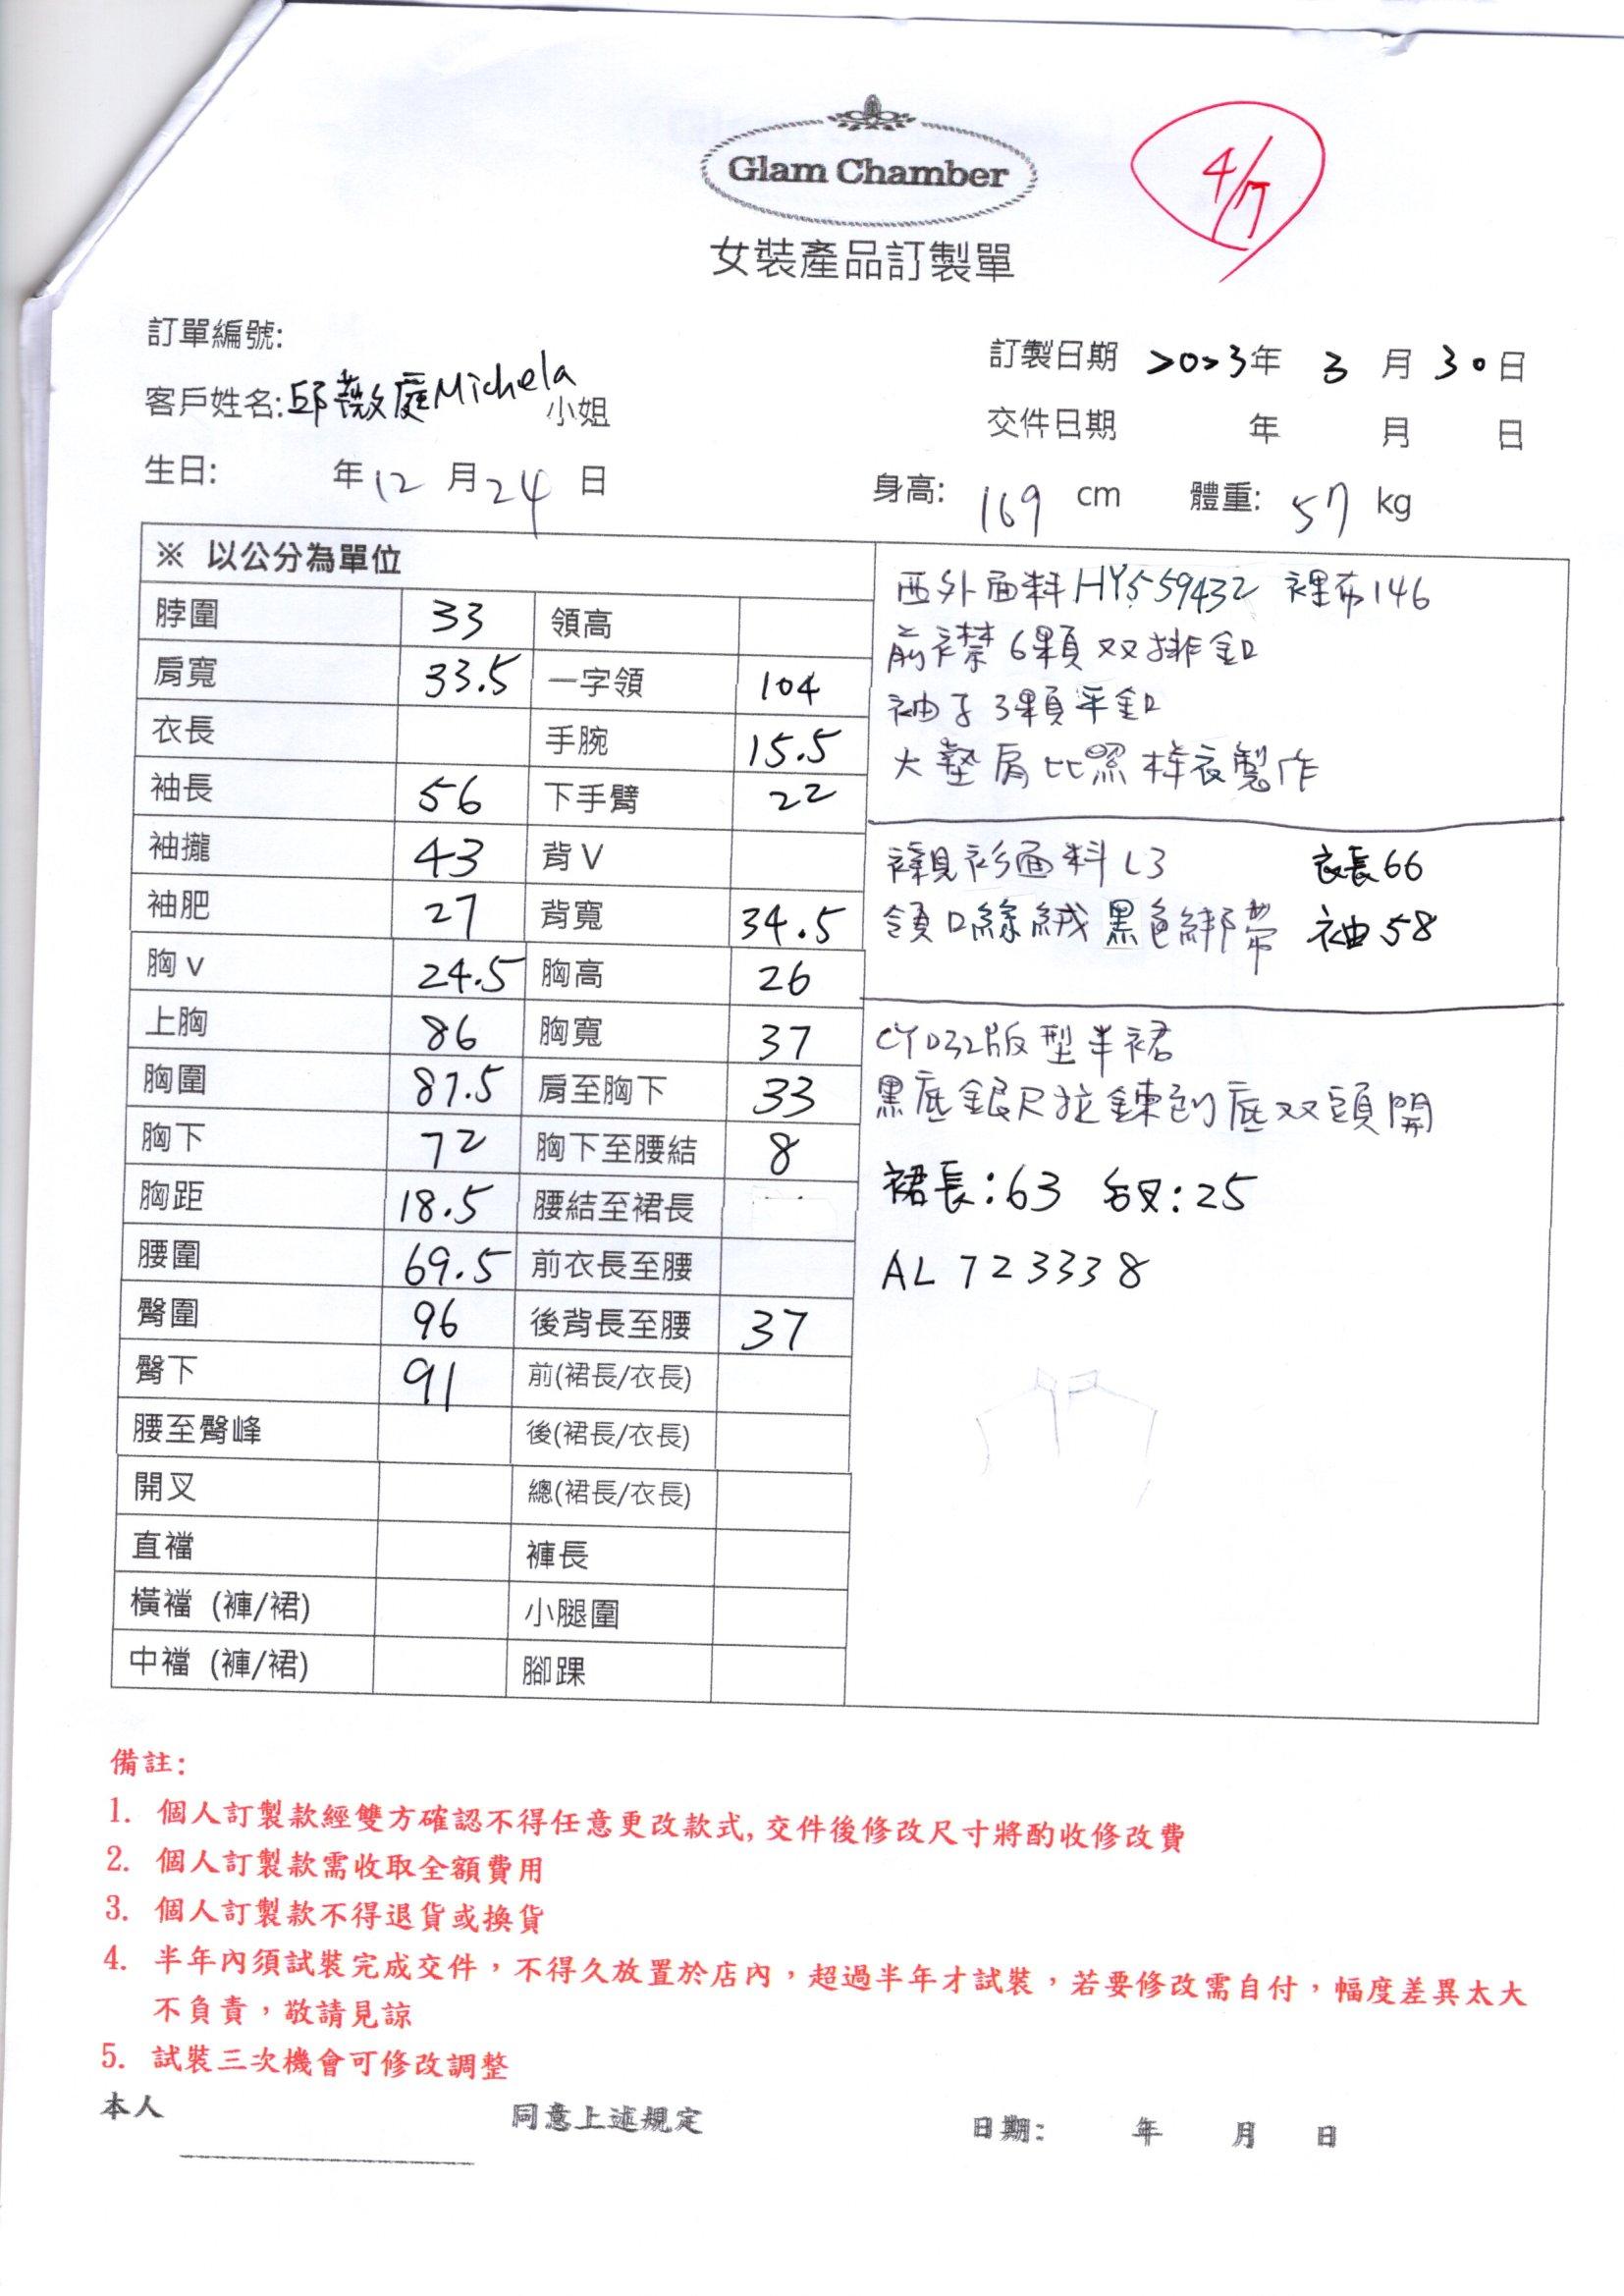 Glam Chamber
4/7
女裝產品訂製單
訂單編號:
訂製日期 2023年 3 月 30日
客戶姓名:邱薇庭Michela 小姐
交件日期 年 月 日
生日: 年12月24日
身高: 169 cm 體重: 57 kg
※ 以公分為單位
脖圍 33 領高
肩寬 33.5 一字領 104
衣長 手腕 15.5
袖長 56 下手臂 22
袖攏 43 背V
袖肥 27 背寬 34.5
胸v 24.5 胸高 26
上胸 86 胸寬 37
胸圍 87.5 肩至胸下 33
胸下 72 胸下至腰結 8
胸距 18.5 腰結至裙長
腰圍 69.5 前衣長至腰
臀圍 96 後背長至腰 37
臀下 91 前(裙長/衣長)
腰至臀峰 後(裙長/衣長)
開叉 總(裙長/衣長)
直襠 褲長
橫襠 (褲/裙) 小腿圍
中襠 (褲/裙) 腳踝
西外面料HY559432 裡布146
前襟6顆双排釦
袖子3顆平釦
大墊肩比照样衣製作
襯衫面料L3 衣長66
領口絲絨黑色綁帶 袖58
CY032版型半裙
黑底銀尺拉鍊到底双頭開
裙長:63 叉:25
AL 723338
備註:
1. 個人訂製款經雙方確認不得任意更改款式,交件後修改尺寸將酌收修改費
2. 個人訂製款需收取全額費用
3. 個人訂製款不得退貨或換貨
4. 半年內須試裝完成交件，不得久放置於店內，超過半年才試裝，若要修改需自付，幅度差異太大
不負責，敬請見諒
5. 試裝三次機會可修改調整
本人 同意上述規定 日期: 年 月 日